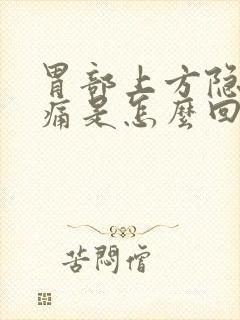 胃部上方隐
痛是怎麼回
苦悶僧